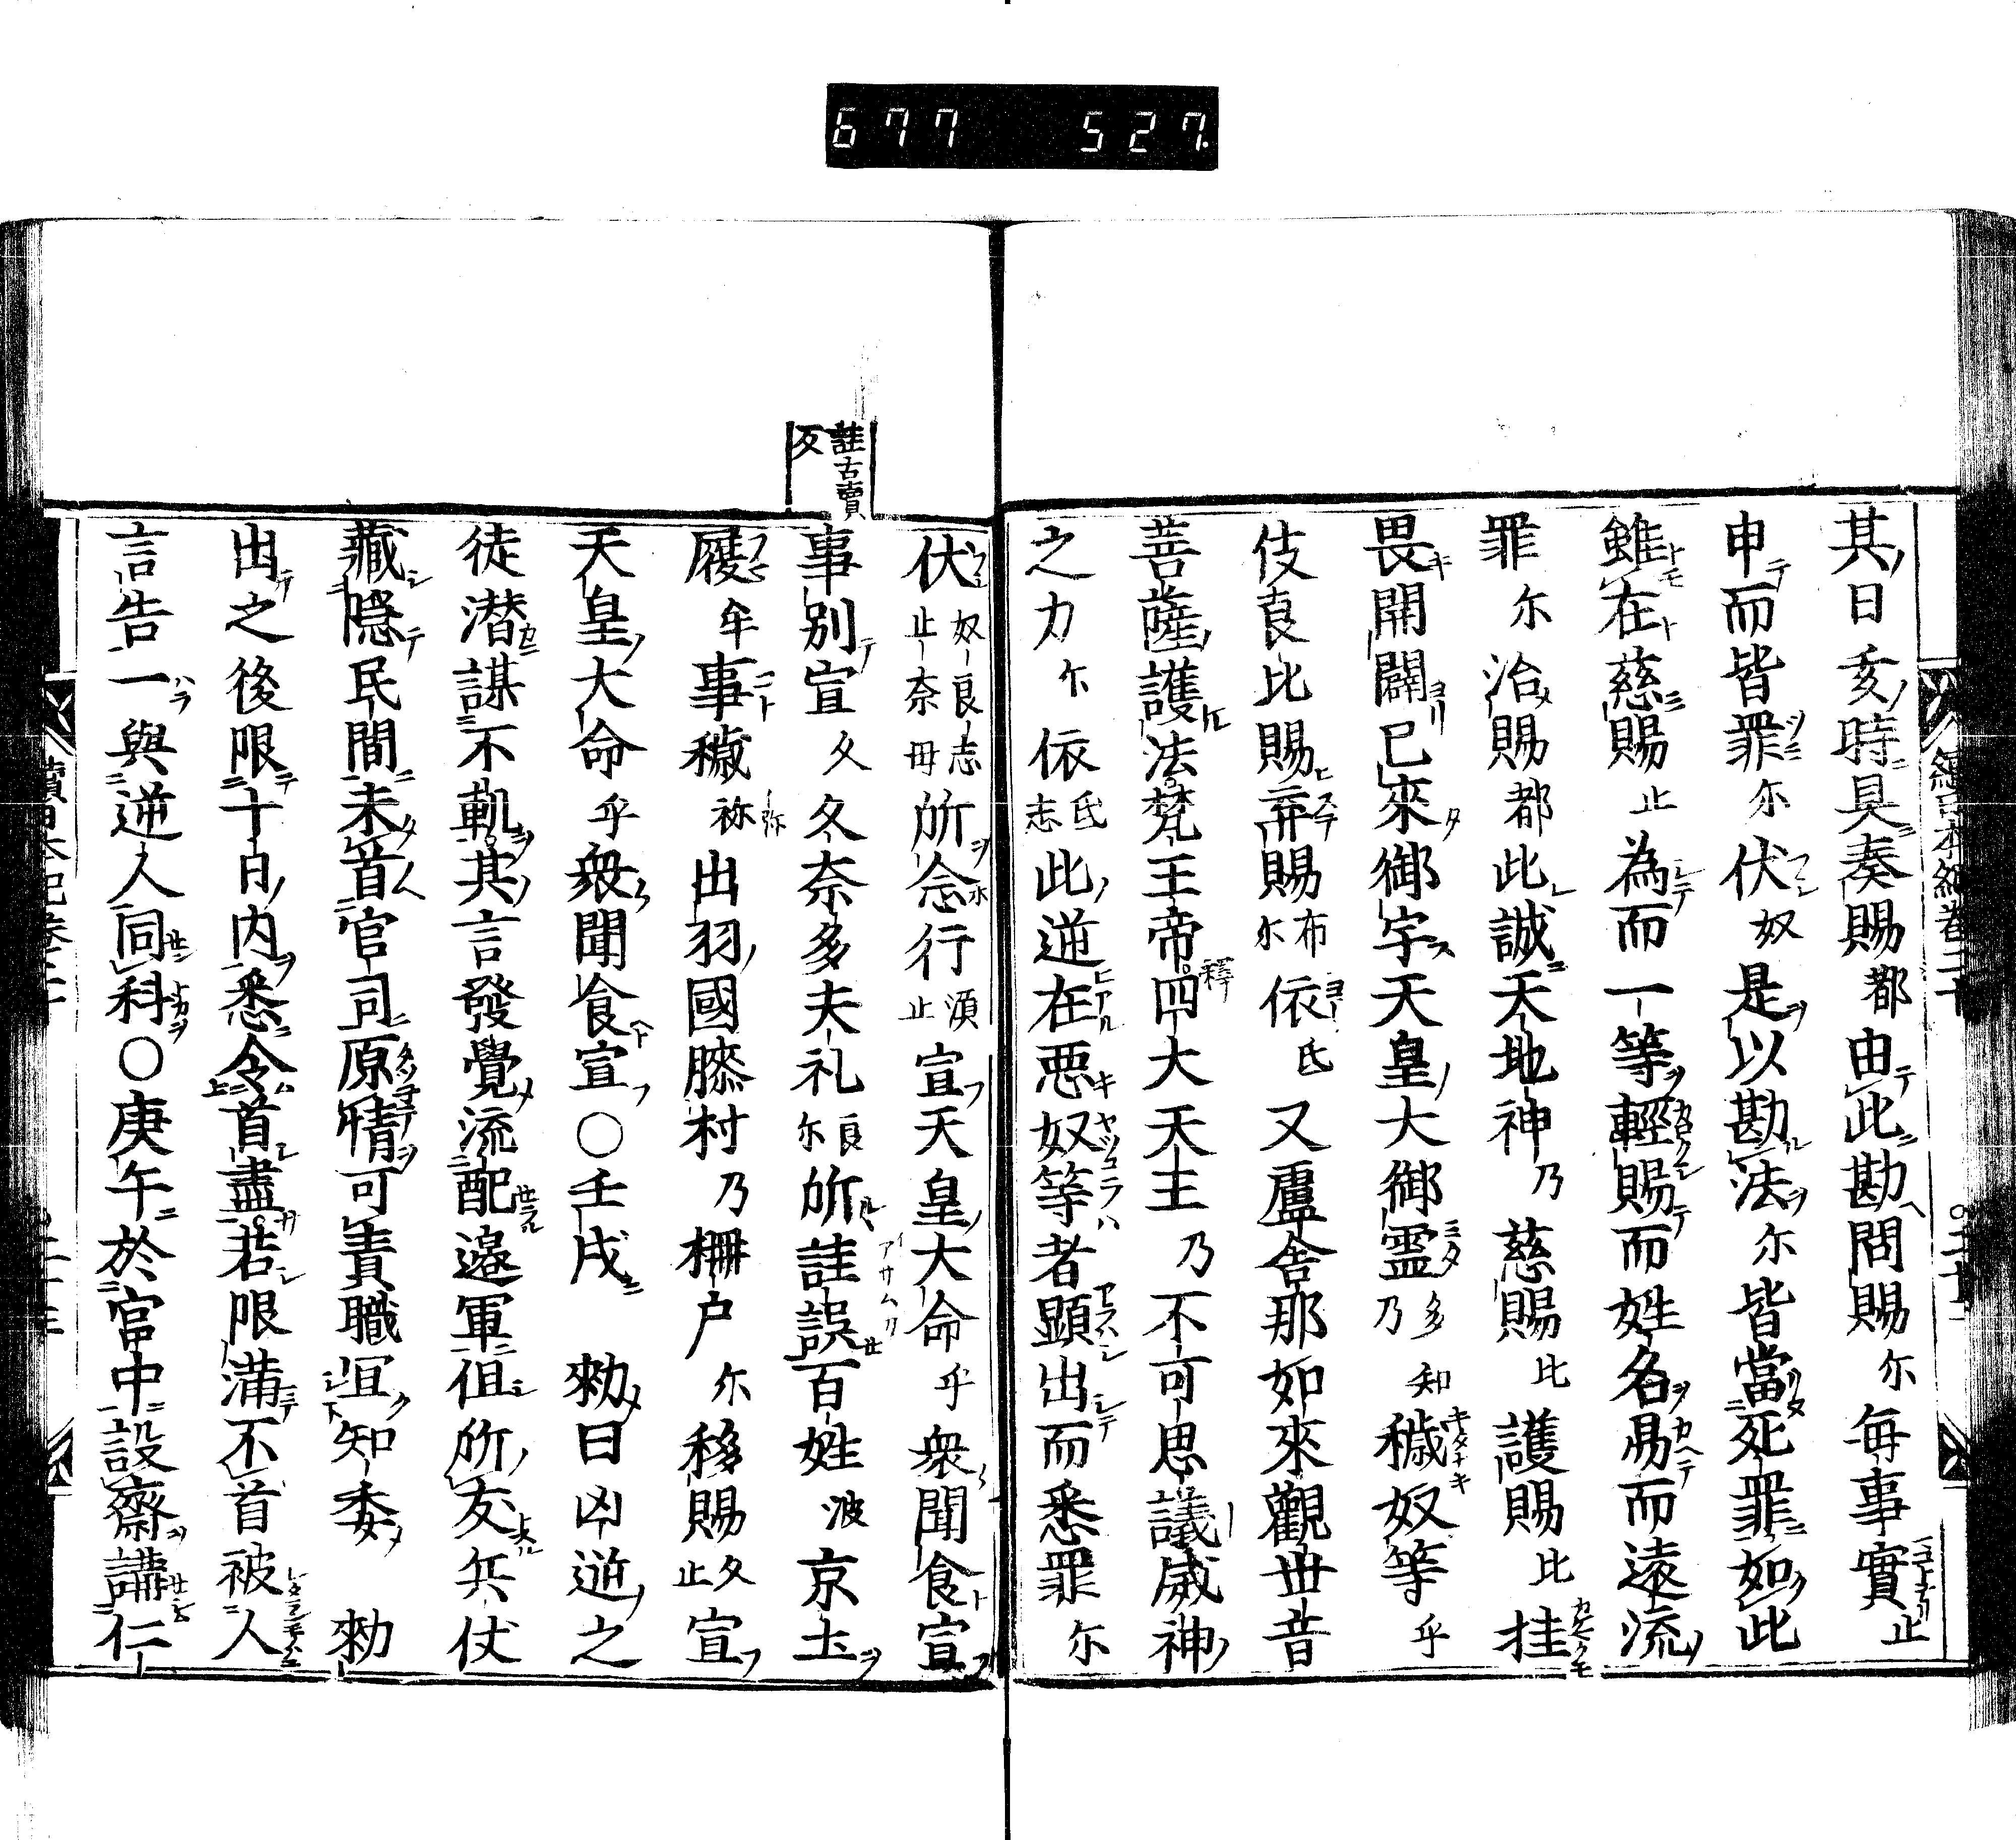 677 527
其日亥時具奏賜都由此勘問賜尓毎事實止
申而皆罪尓伏奴是以勘法尓皆當死罪如此
雖在慈賜止為而一等輕賜而姓名易而遠流
罪尓治賜都此誠天地神乃慈賜比護賜比挂
畏開闢已來御宇天皇大御霊多知乃穢奴等乎
伎良比賜弃賜布尓依氐又盧舎那如來觀世音
菩薩護法梵王帝釋四大天王乃不可思議威神
之力尓依氐志此逆在悪奴等者顯出而悉罪尓
伏奴良志止奈母所念行須止宣天皇大命乎衆聞食宣
註古賣反
事別宣久久奈多夫礼良尓所詿誤百姓波京土
履牟事穢祢出羽國勝村乃柵户尓移賜久止宣
天皇大命乎衆聞食宣〇壬戌勅曰凶逆之
徒潜謀不軌其言發覺流配邉軍但所友兵仗
藏隠民間未首官司原情可責職冝知委勅
出之後限十日内悉令首盡若限満不首被人
言告一與逆人同科〇庚午於宮中設齋講仁